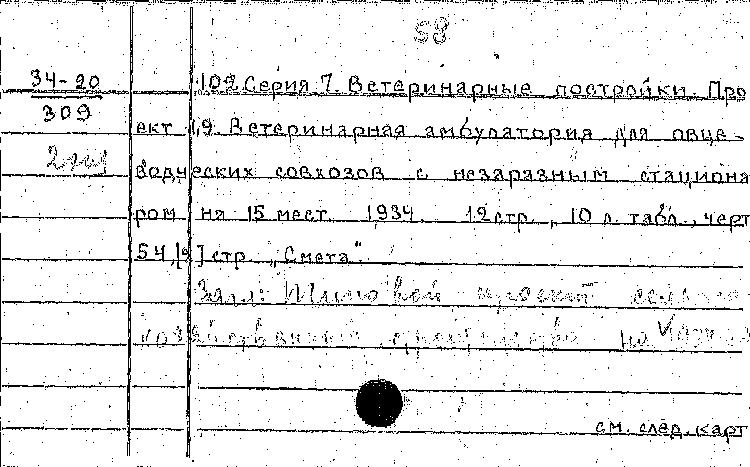 58
34-20
309
2 экз
102 Серия 7. Ветеринарные постройки. Про
ект 19. Ветеринарная амбулатория для овце-
водческих совхозов с незаразным стациона
ром на 15 мест. 1934. 12 стр., 10 л. табл., черт
54,[2] стр. "Смета".
Загл: Типовой проект
на
см. след. карт